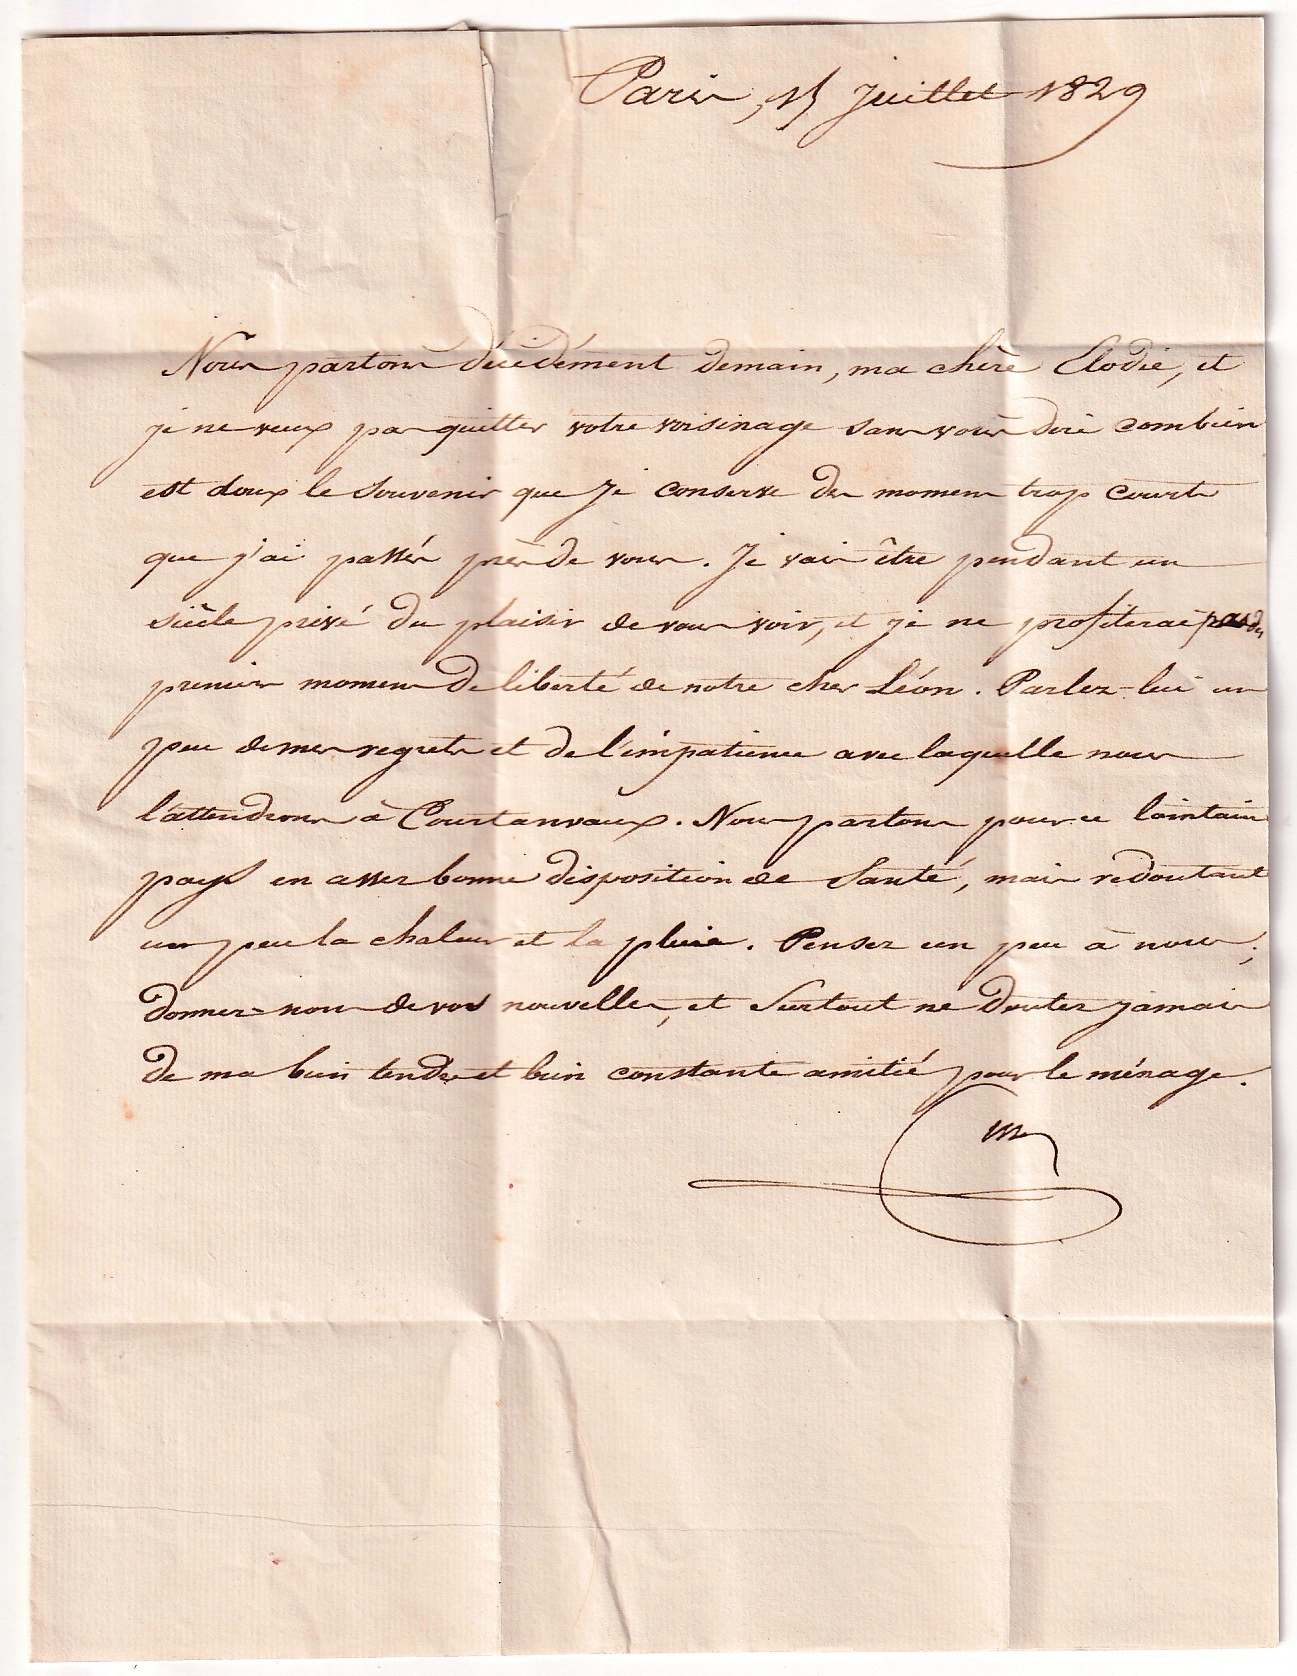 Paris, 15 Juillet 1829
Nous partons décidément demain, ma chère Elodie, et
je ne veux pas quitter votre voisinage sans vous dire combien
est doux le souvenir que je conserve des momens trop courts
que j'ai passés près de vous. Je vais être pendant un
siècle privé du plaisir de vous voir, et je ne profiterai pas des
premiers momens de liberté de notre cher Léon. Parlez-lui un
peu de mes regrets et de l'impatience avec laquelle nous
l'attendrons à Courtanvaux. Nous partons pour ce lointain
pays en assez bonne disposition de santé, mais redoutant
un peu la chaleur et la pluie. Pensez un peu à nous;
donnez-nous de vos nouvelles, et surtout ne doutez jamais
de ma bien tendre et bien constante amitié pour le ménage.